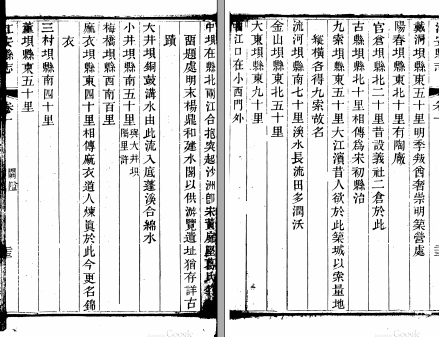 戴洞垻縣東五十里明季叛酋奢崇明築營處
陽春垻縣東北十里有陶廠
官倉垻縣北二十里昔設義社二倉於此
古縣垻縣北十里相傳爲宋初縣治
九索垻縣東五十里大江濱昔人欲於此築城以索量地
縱橫各得九索故名
流河垻縣南七十里溪水長流田多潤沃
金山垻縣東北五十里
大東垻縣東九十里
江口在小西門外
中垻在縣北兩江合抱突起沙洲卽宋
留題處明末楊鼎和建水閣以供游覽遺址猶存詳古
蹟
大井垻銅鼓溝水由此流入底蓬溪合綿水
小井垻縣南五十里與大井垻隔里許
梅橋垻縣西南百里
麻衣垻縣東四十里相傳麻衣道人煉眞於此今更名錦
衣
三村垻縣南四十里
董垻縣東五十里
江安縣志
卷一